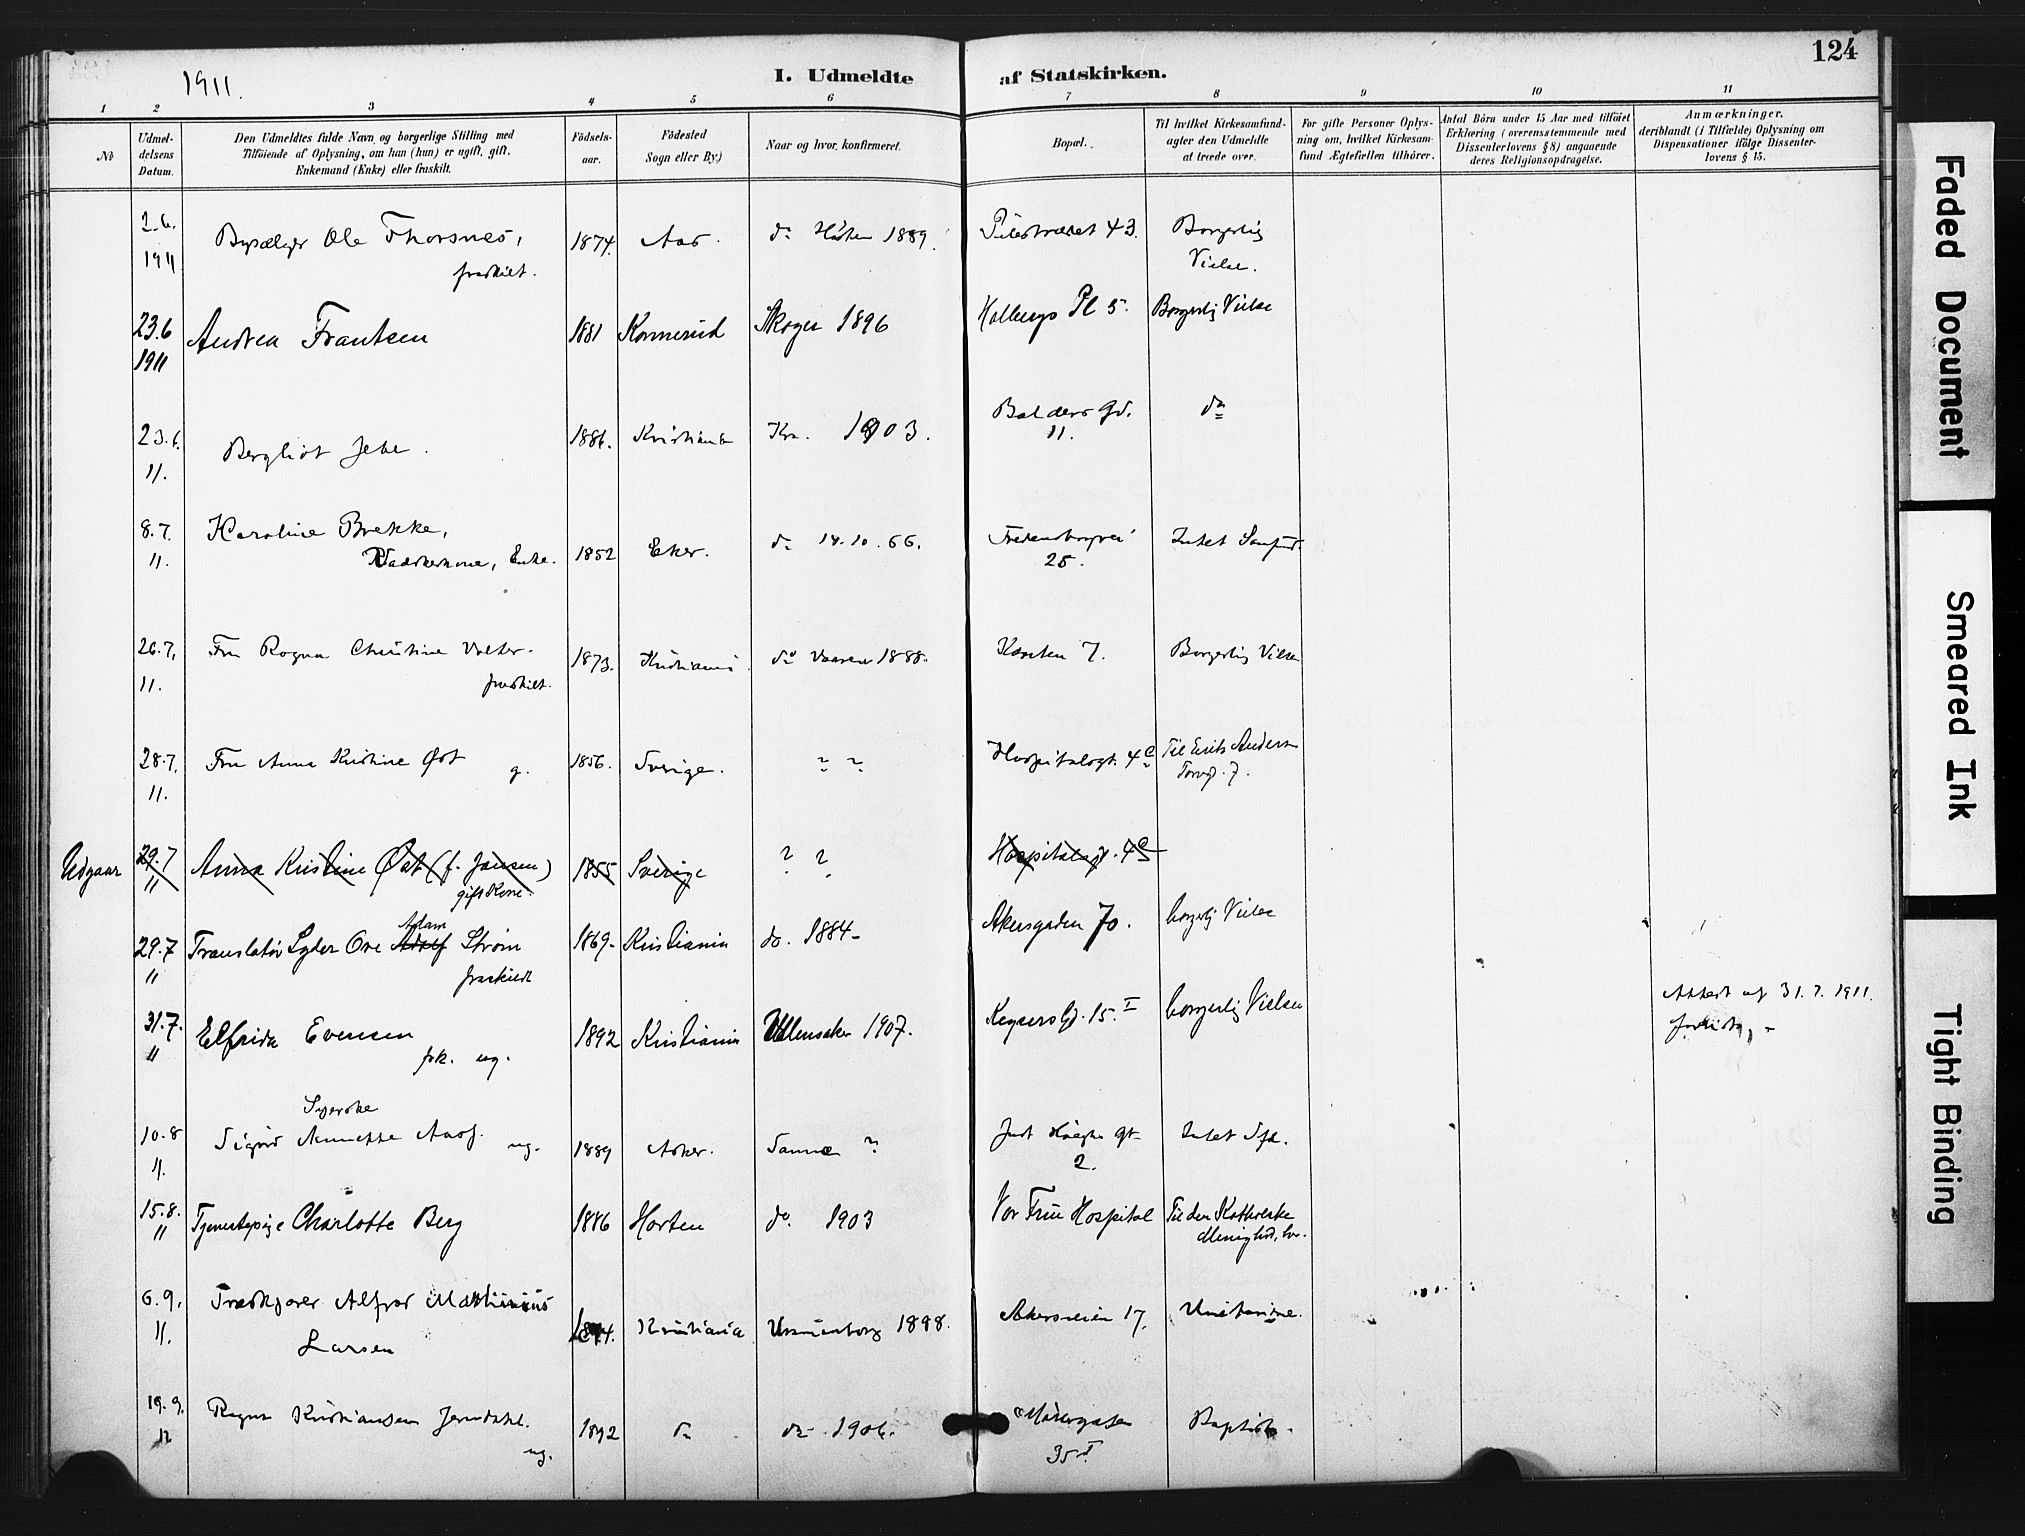 124
1911.
I. Udmeldte af Statskirken.
1 2 3 4 5 6 7 8 9 10 11
No
Udmel-
delsens
Datum.
Den Udmeldtes fulde Navn og borgerlige Stilling med
Tilföiende af Oplysning, om han (hun) er ugift, gift,
Enkemand (Enke) eller fraskilt.
Födsels-
aar.
Födested
Sogn eller By.)
Naar og hvor konfirmeret.
Bopæl.
Til hvilket Kirkesamfund-
agter den Udmeldte
at træde over.
For gifte Personer Oplys-
ning om, hvilket Kirkesam-
fund Ægtefællen tilhörer.
Antal Börn under 15 Aar med tilföiet
Erklæring (overensstemmende med
Dissenterlovens § 8) angaaende
deres Religionsopdragelse.
Anmærkninger,
deriblandt (i Tilfælde) Oplysning om
Dispensationer ifölge Dissenter-
lovens § 15.
2.6. Bysælger Ole Thorsnes, 1874. Aas. do Høsten 1889. Pilestrædet 43. Borgerlig
1911 fraskilt. Vielse.
23.6 Andrea Frantsen 1881 Konnerud Skoger 1896 Holbergs Pl 5. Borgerlig Vielse
1911
23.6. Bergliot Jebe. 1886. Kristiania Kra. 1903. Balders Gd. do
11. 11.
8.7. Karoline Brekke, 1852 Eker. do 14.10.66. Fredensborgvei Intet Samfund.
11. Vadskerkone, Enke. 25.
26.7. Fru Ragna Christine Volter. 1873. Kristiania. do Vaaren 1888. Karsten 7. Borgerlig Vielse
11. fraskilt.
28.7. Fru Anna Kristine Øst g. 1856. Sverige. ? ? Hospitalsgt. 4c Til Erik Anderson
11. Torvg. 7.
Udgaar 29.7 Anna Kristine Øst (f. Jansen) 1855 Sverige ? ? Hospitalsgt. 4c
11 gift Kone.
Adam
29.7 Translatør Lyder Ove Adolf Strøm 1869- Kristiania do. 1884- Akersgaden 70. borgerlig Vielse
11 fraskildt
31.7. Elfrida Evensen 1892 Kristiania Ullensaker 1907. Keysers Gd. 15.I borgerlig Vielse Attest af 31.7.1911.
11 frk. ug.
Syerske
10.8 Sigrid Annette Aas ug. 1889 Asker. Sanne ? Just Høeghs gt. Intet Sfd.
11. 2.
15.8. Tjenestepige Charlotte Berg 1886 Horten do. 1903 Vor Frue Hospital Til den Katholske
11 Menighed, her.
6.9. Træskjærer Alfred Mathinius 1884. Kristiania Uranienborg 1898. Akersveien 17. Unitarierne.
11. Larsen
19.9. Ragna Kristiansen Jerndahl. 1892 do do 1906. Møllergaden Baptist.
11 ug. 35 I.
Faded Document
Smeared Ink
Tight Binding